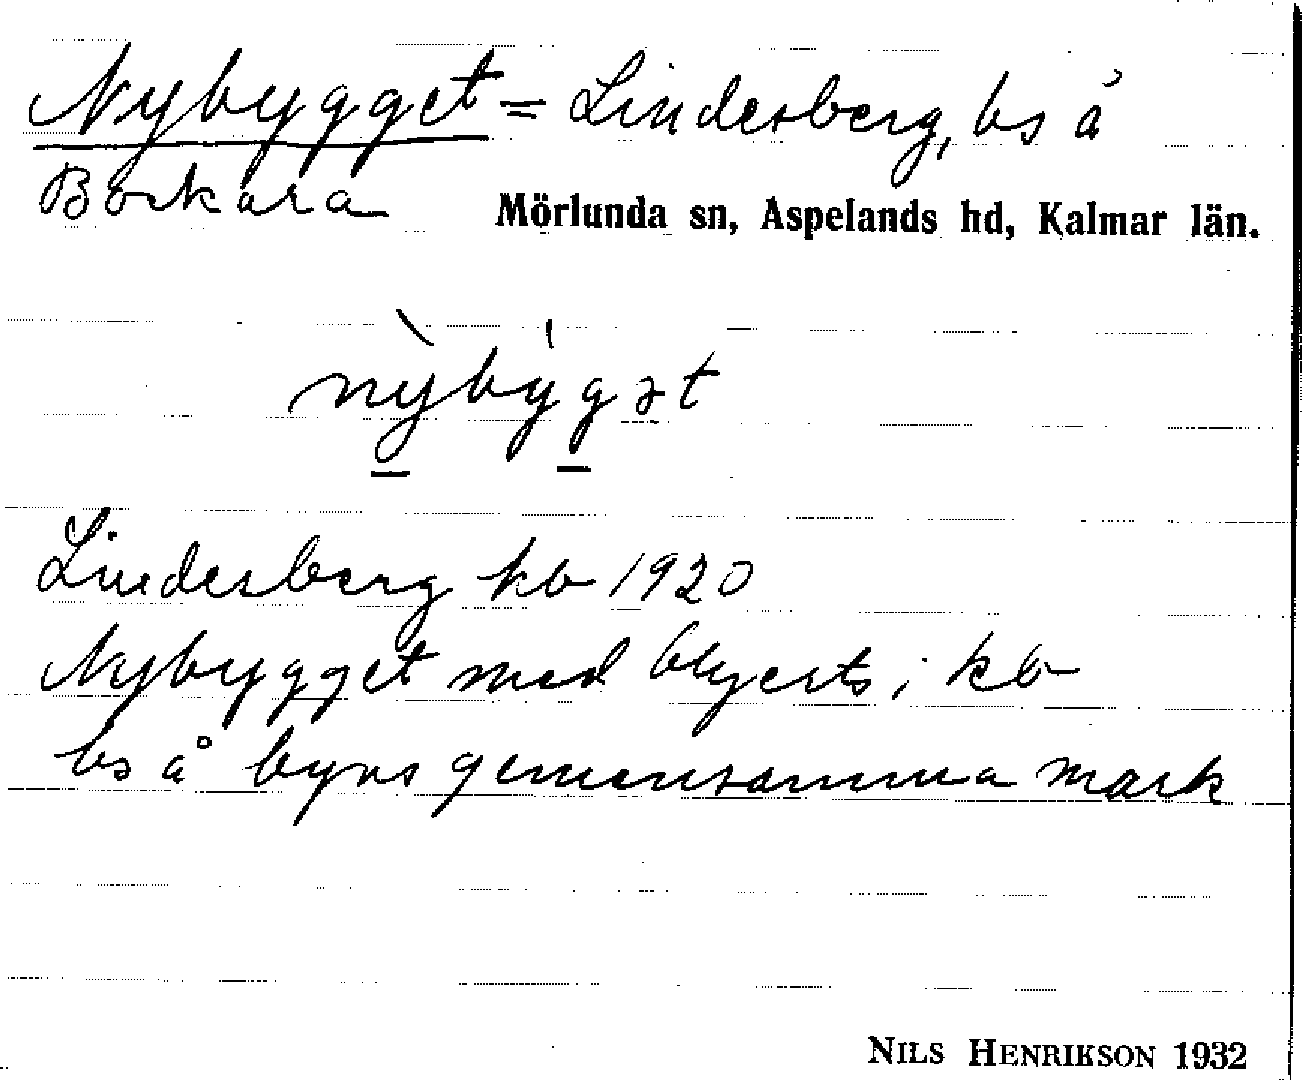 Nybygget = Lindesberg, bs å
Bockara
Mörlunda sn, Aspelands hd, Kalmar län.
nỳbýgət
Lindesberg kb 1920
Nybygget med blyerts i kb
bs å byns gemensamma mark
NILS HENRIKSON 1932